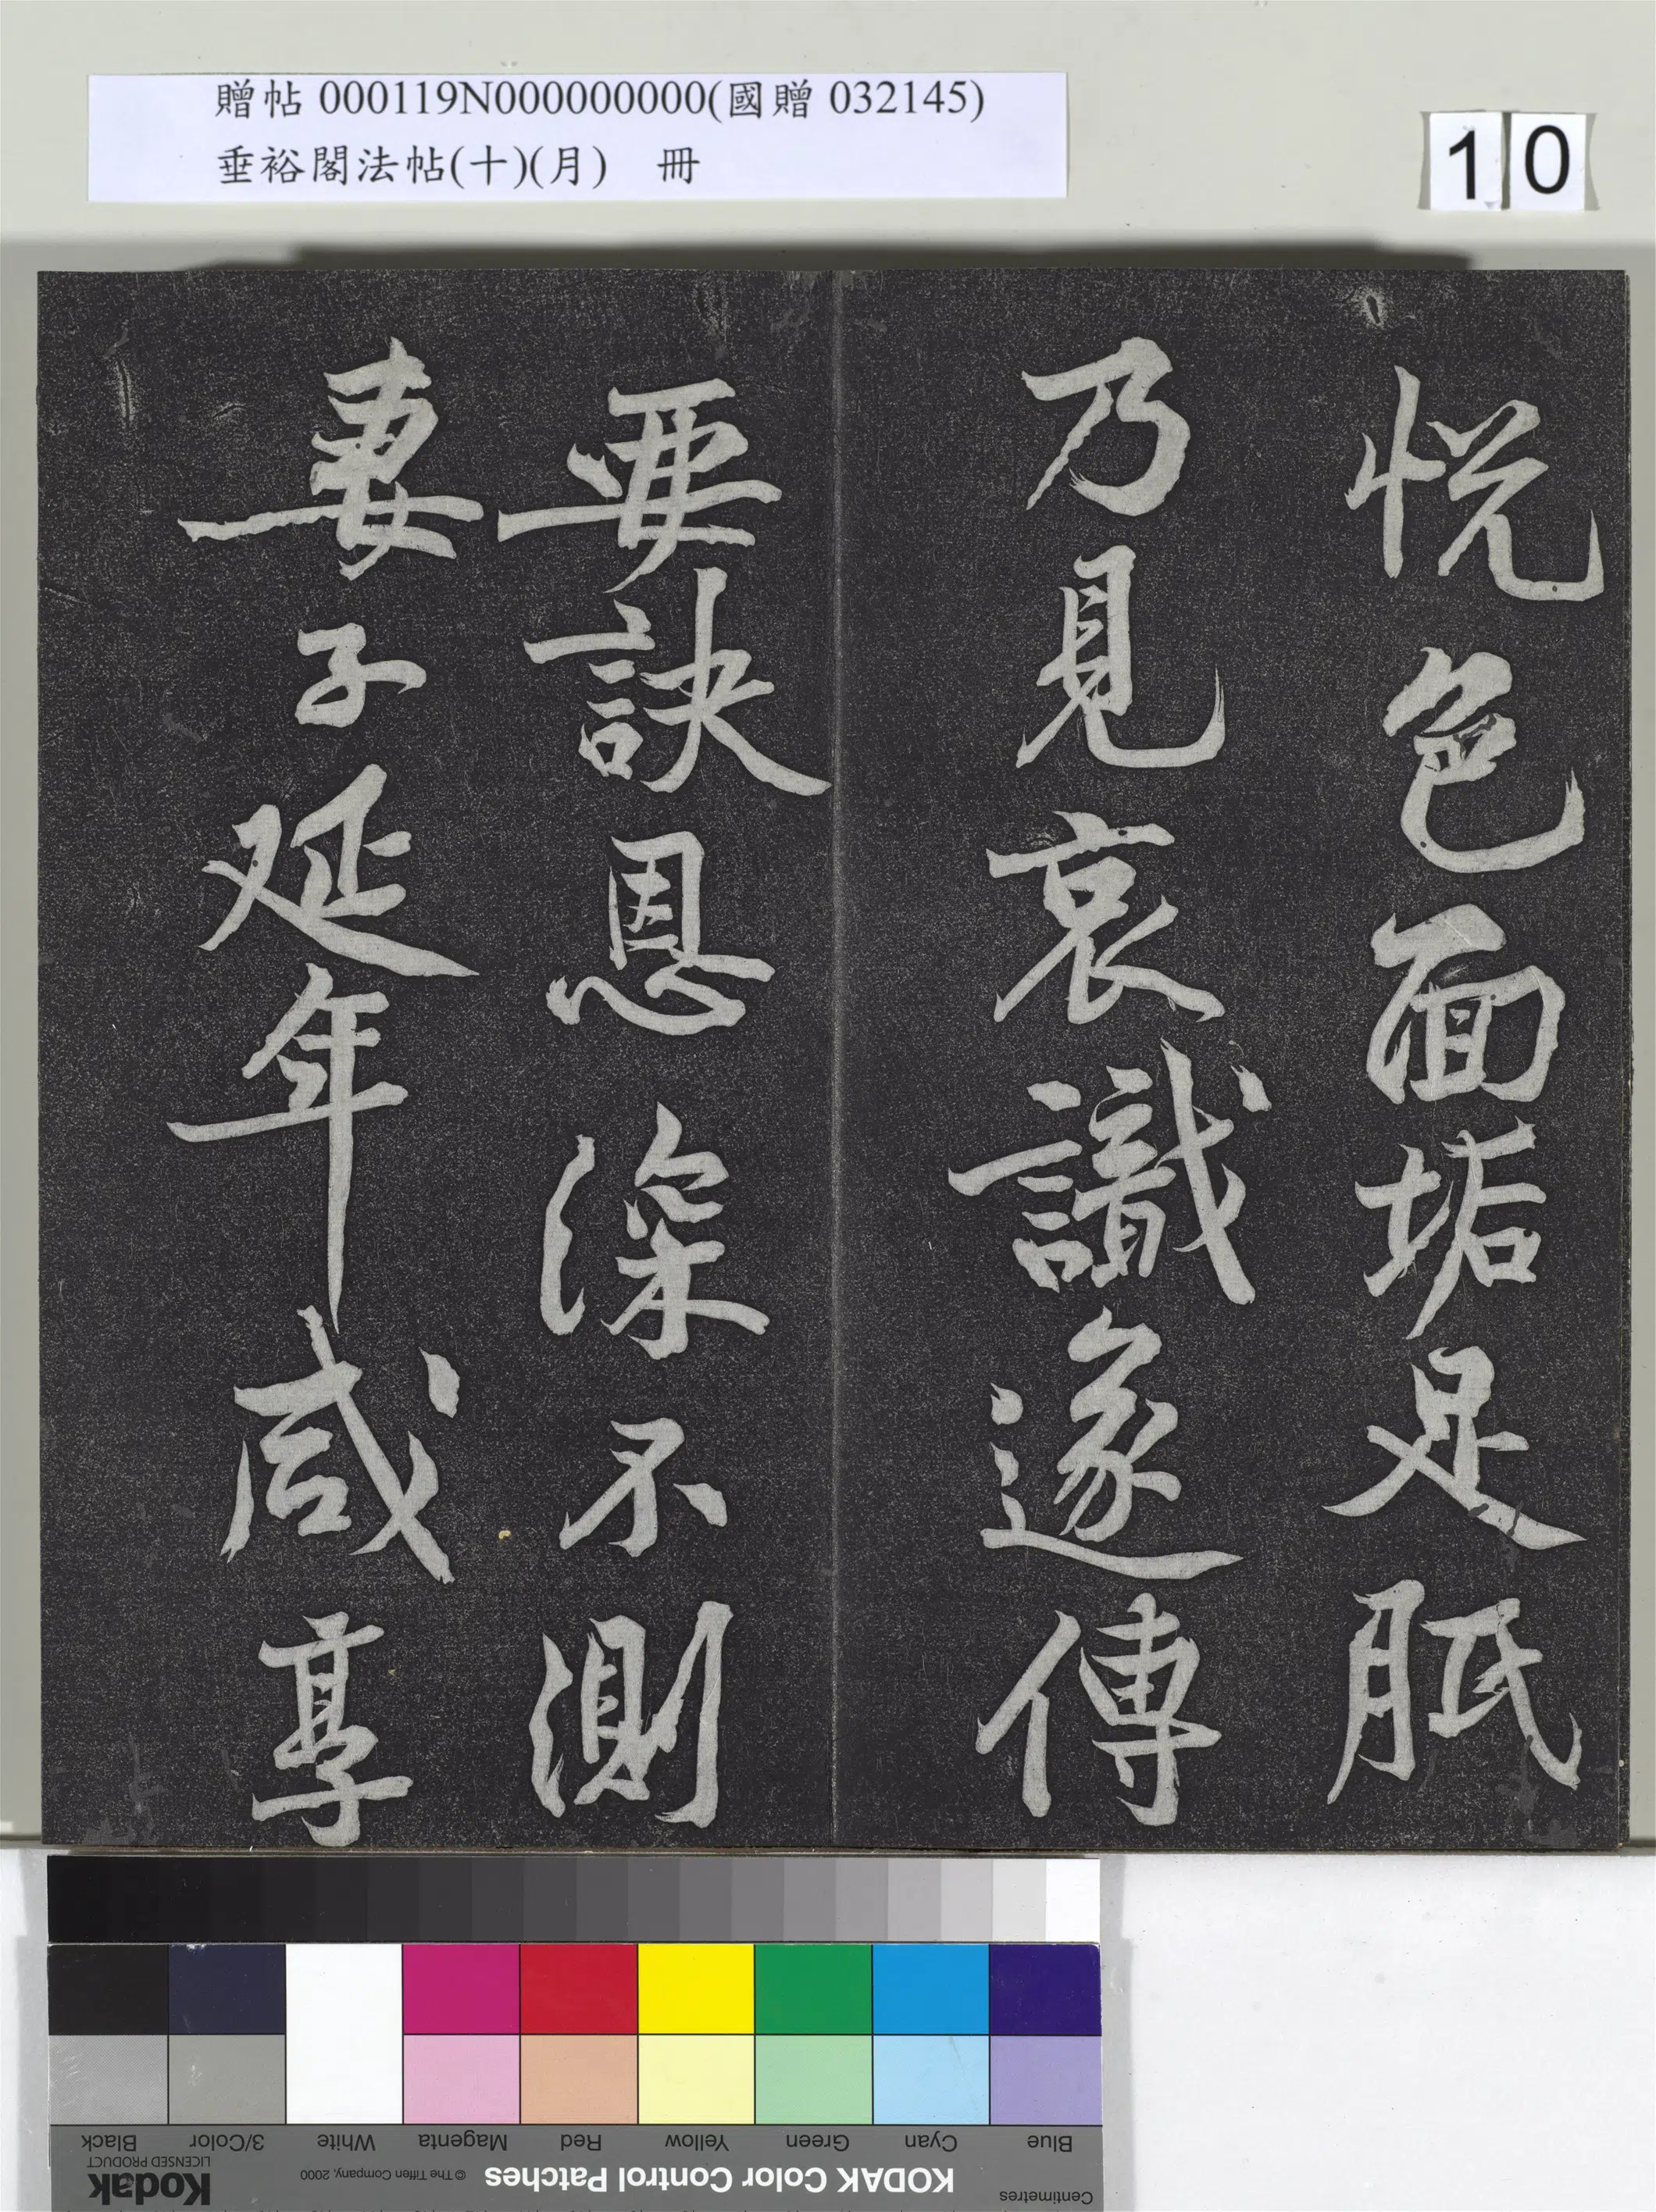 贈帖 000119N000000000(國贈 032145)
垂裕閣法帖(十)(月) 冊
10
悦色面垢足胝
乃見哀識遂傳
要訣恩深不測
妻子延年咸享
Black
3/Color
White
Magenta
Red
Yellow
Green
Cyan
Blue
Kodak
LICENSED PRODUCT
© The Tiffen Company, 2000
KODAK Color Control Patches
Centimetres